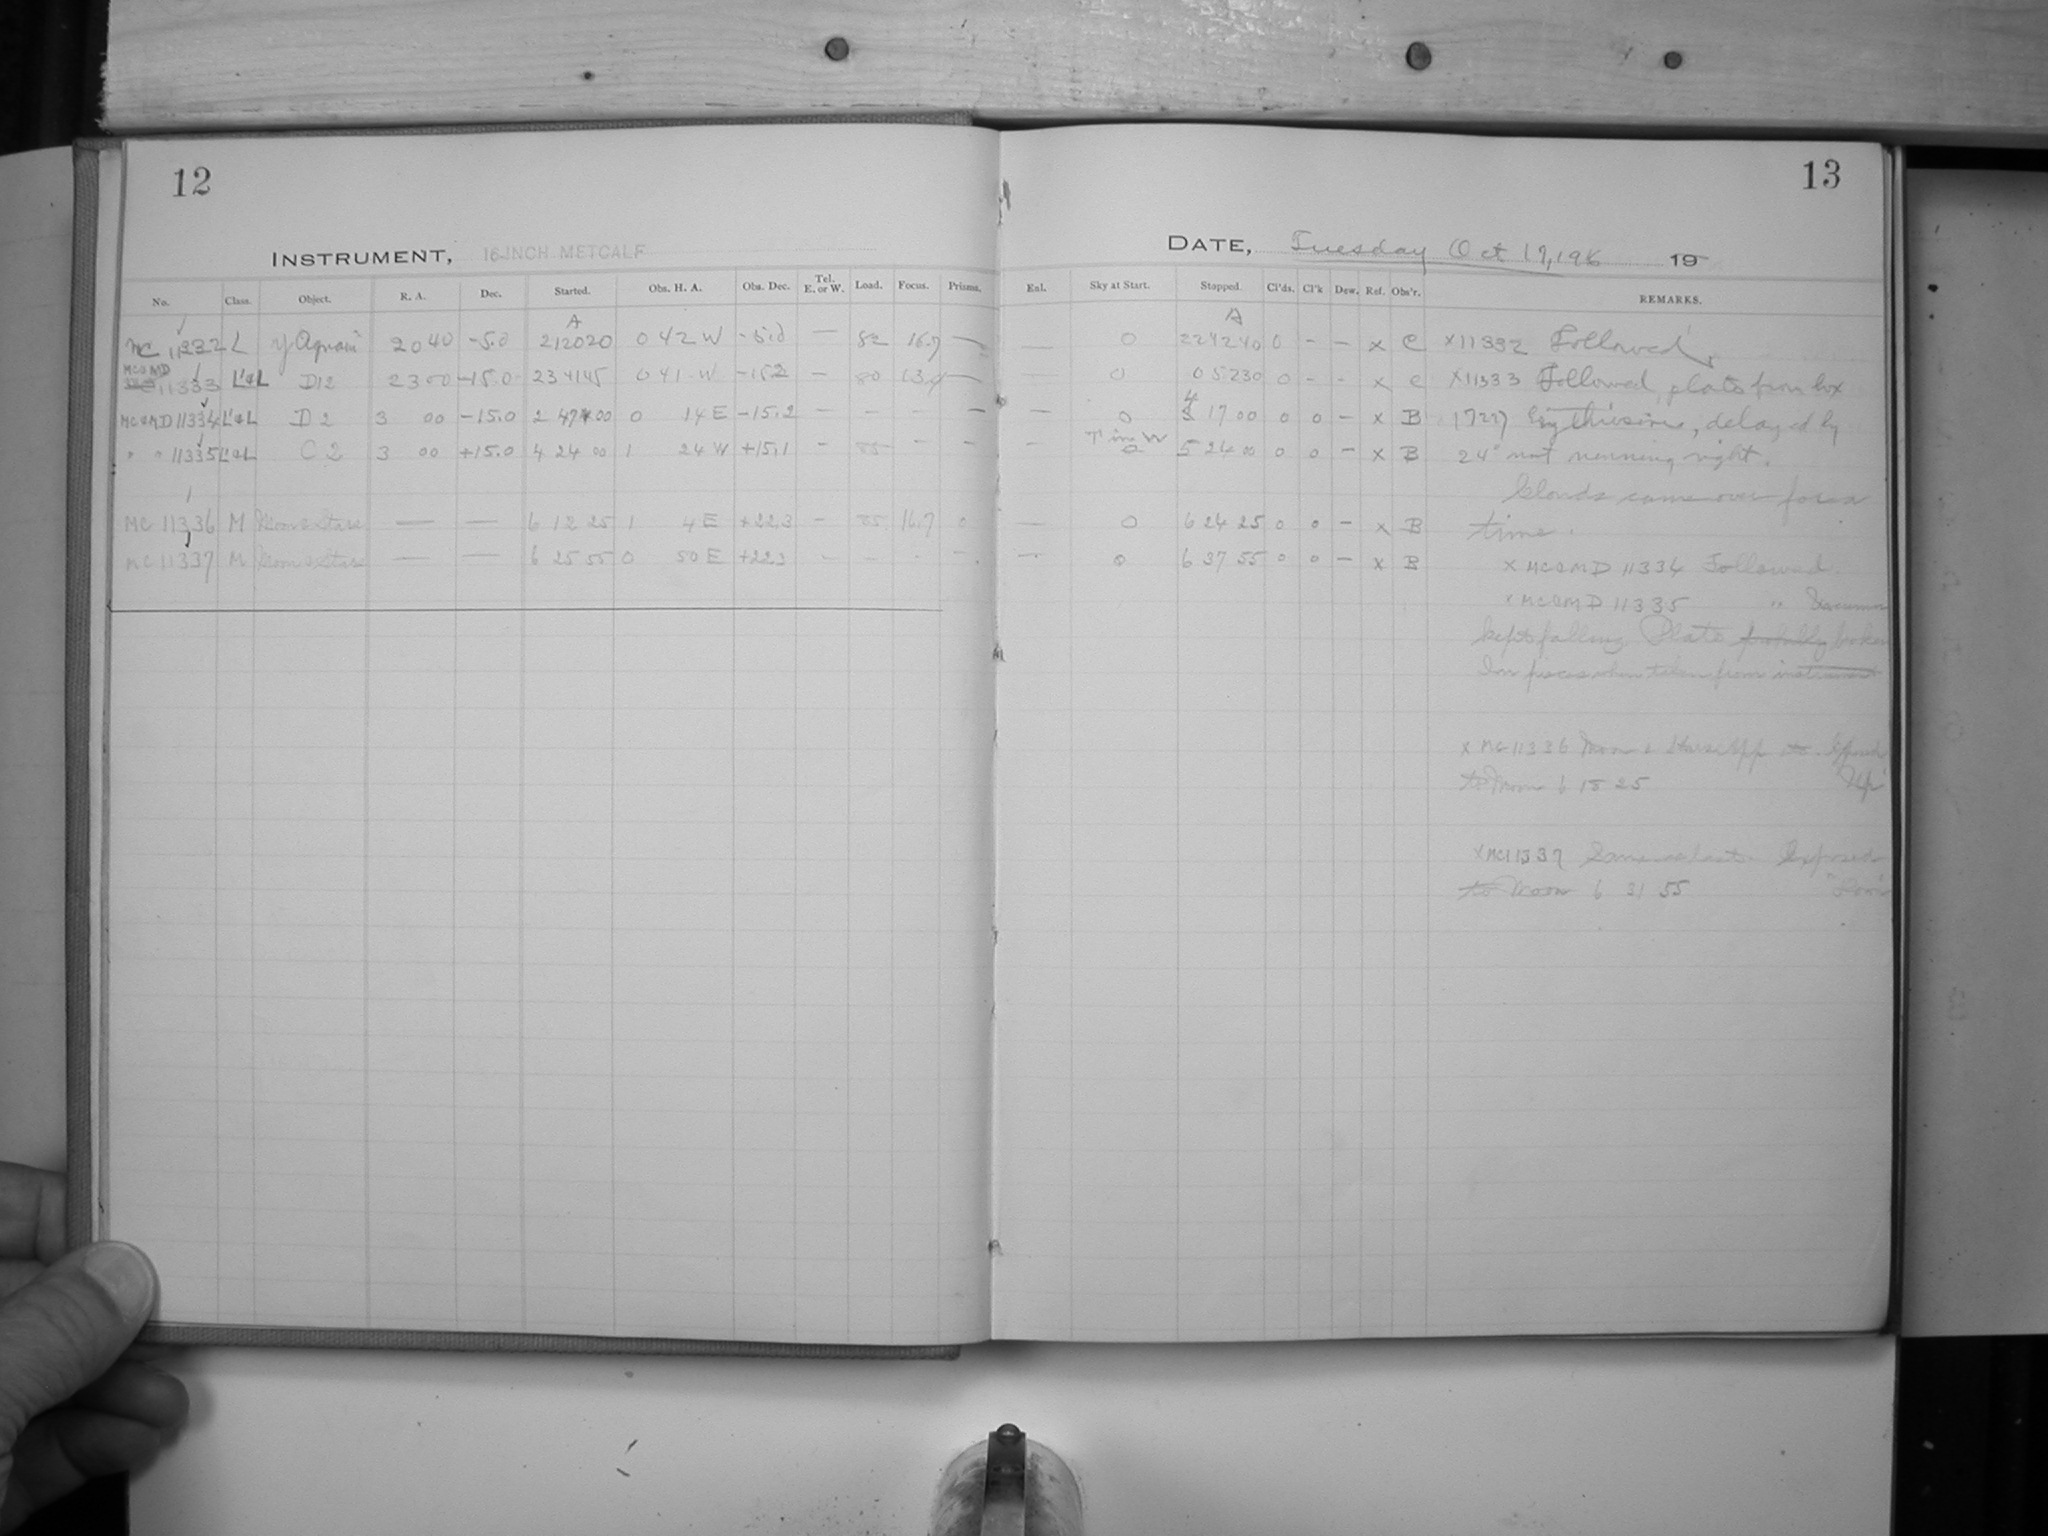 12
13
INSTRUMENT, 16-INCH METCALF
DATE, Tuesday Oct 17, 19
No. Class. Object. R. A. Dec. Started. Obs. H. A. Obs. Dec. Tel. E. or W. Load. Focus. Prisms. Enl. Sky at Start. Stopped. Cl'ds. Cl'k Dew. Ref. Obs'r. REMARKS.
A A
MC 11332 L 20 40 -5.0 21 20 20 0 42 W -5.0 — 82 16.7 — — 0 22 42 40 0 - - x C x11332 Followed
MC&MD 11333 L'&L D12 23 00 -15.0 23 41 45 0 41 W -15.2 - 80 — 0 0 52 30 0 - - x C x11333 Followed, plate from box
MC&MD 11334 L'&L D 2 3 00 -15.0 2 47 00 0 14 E -15.2 - - - - — 0 4 17 00 0 0 - x B delayed by
" " 11335 L'&L C 2 3 00 +15.0 4 24 00 1 24 W +15.1 - 85 - - - 5 24 00 0 0 - x B 24" not running right.
Clouds came over for a
MC 11336 M Moon & Stars — — 6 12 25 1 4 E +22.3 - 85 16.7 0 — 0 6 24 25 0 0 - x B time.
MC 11337 M Moon & Stars — — 6 25 55 0 50 E +22.3 - - - - — 0 6 37 55 0 0 - x B x MC&MD 11334 Followed.
x MC&MD 11335 "
kept falling Plate probably broken
pieces when taken from instrument
x MC 11336 Moon & Stars
to Moon 6 18 25 "Up"
x MC 11337 Same as last Exposed
to Moon 6 31 55